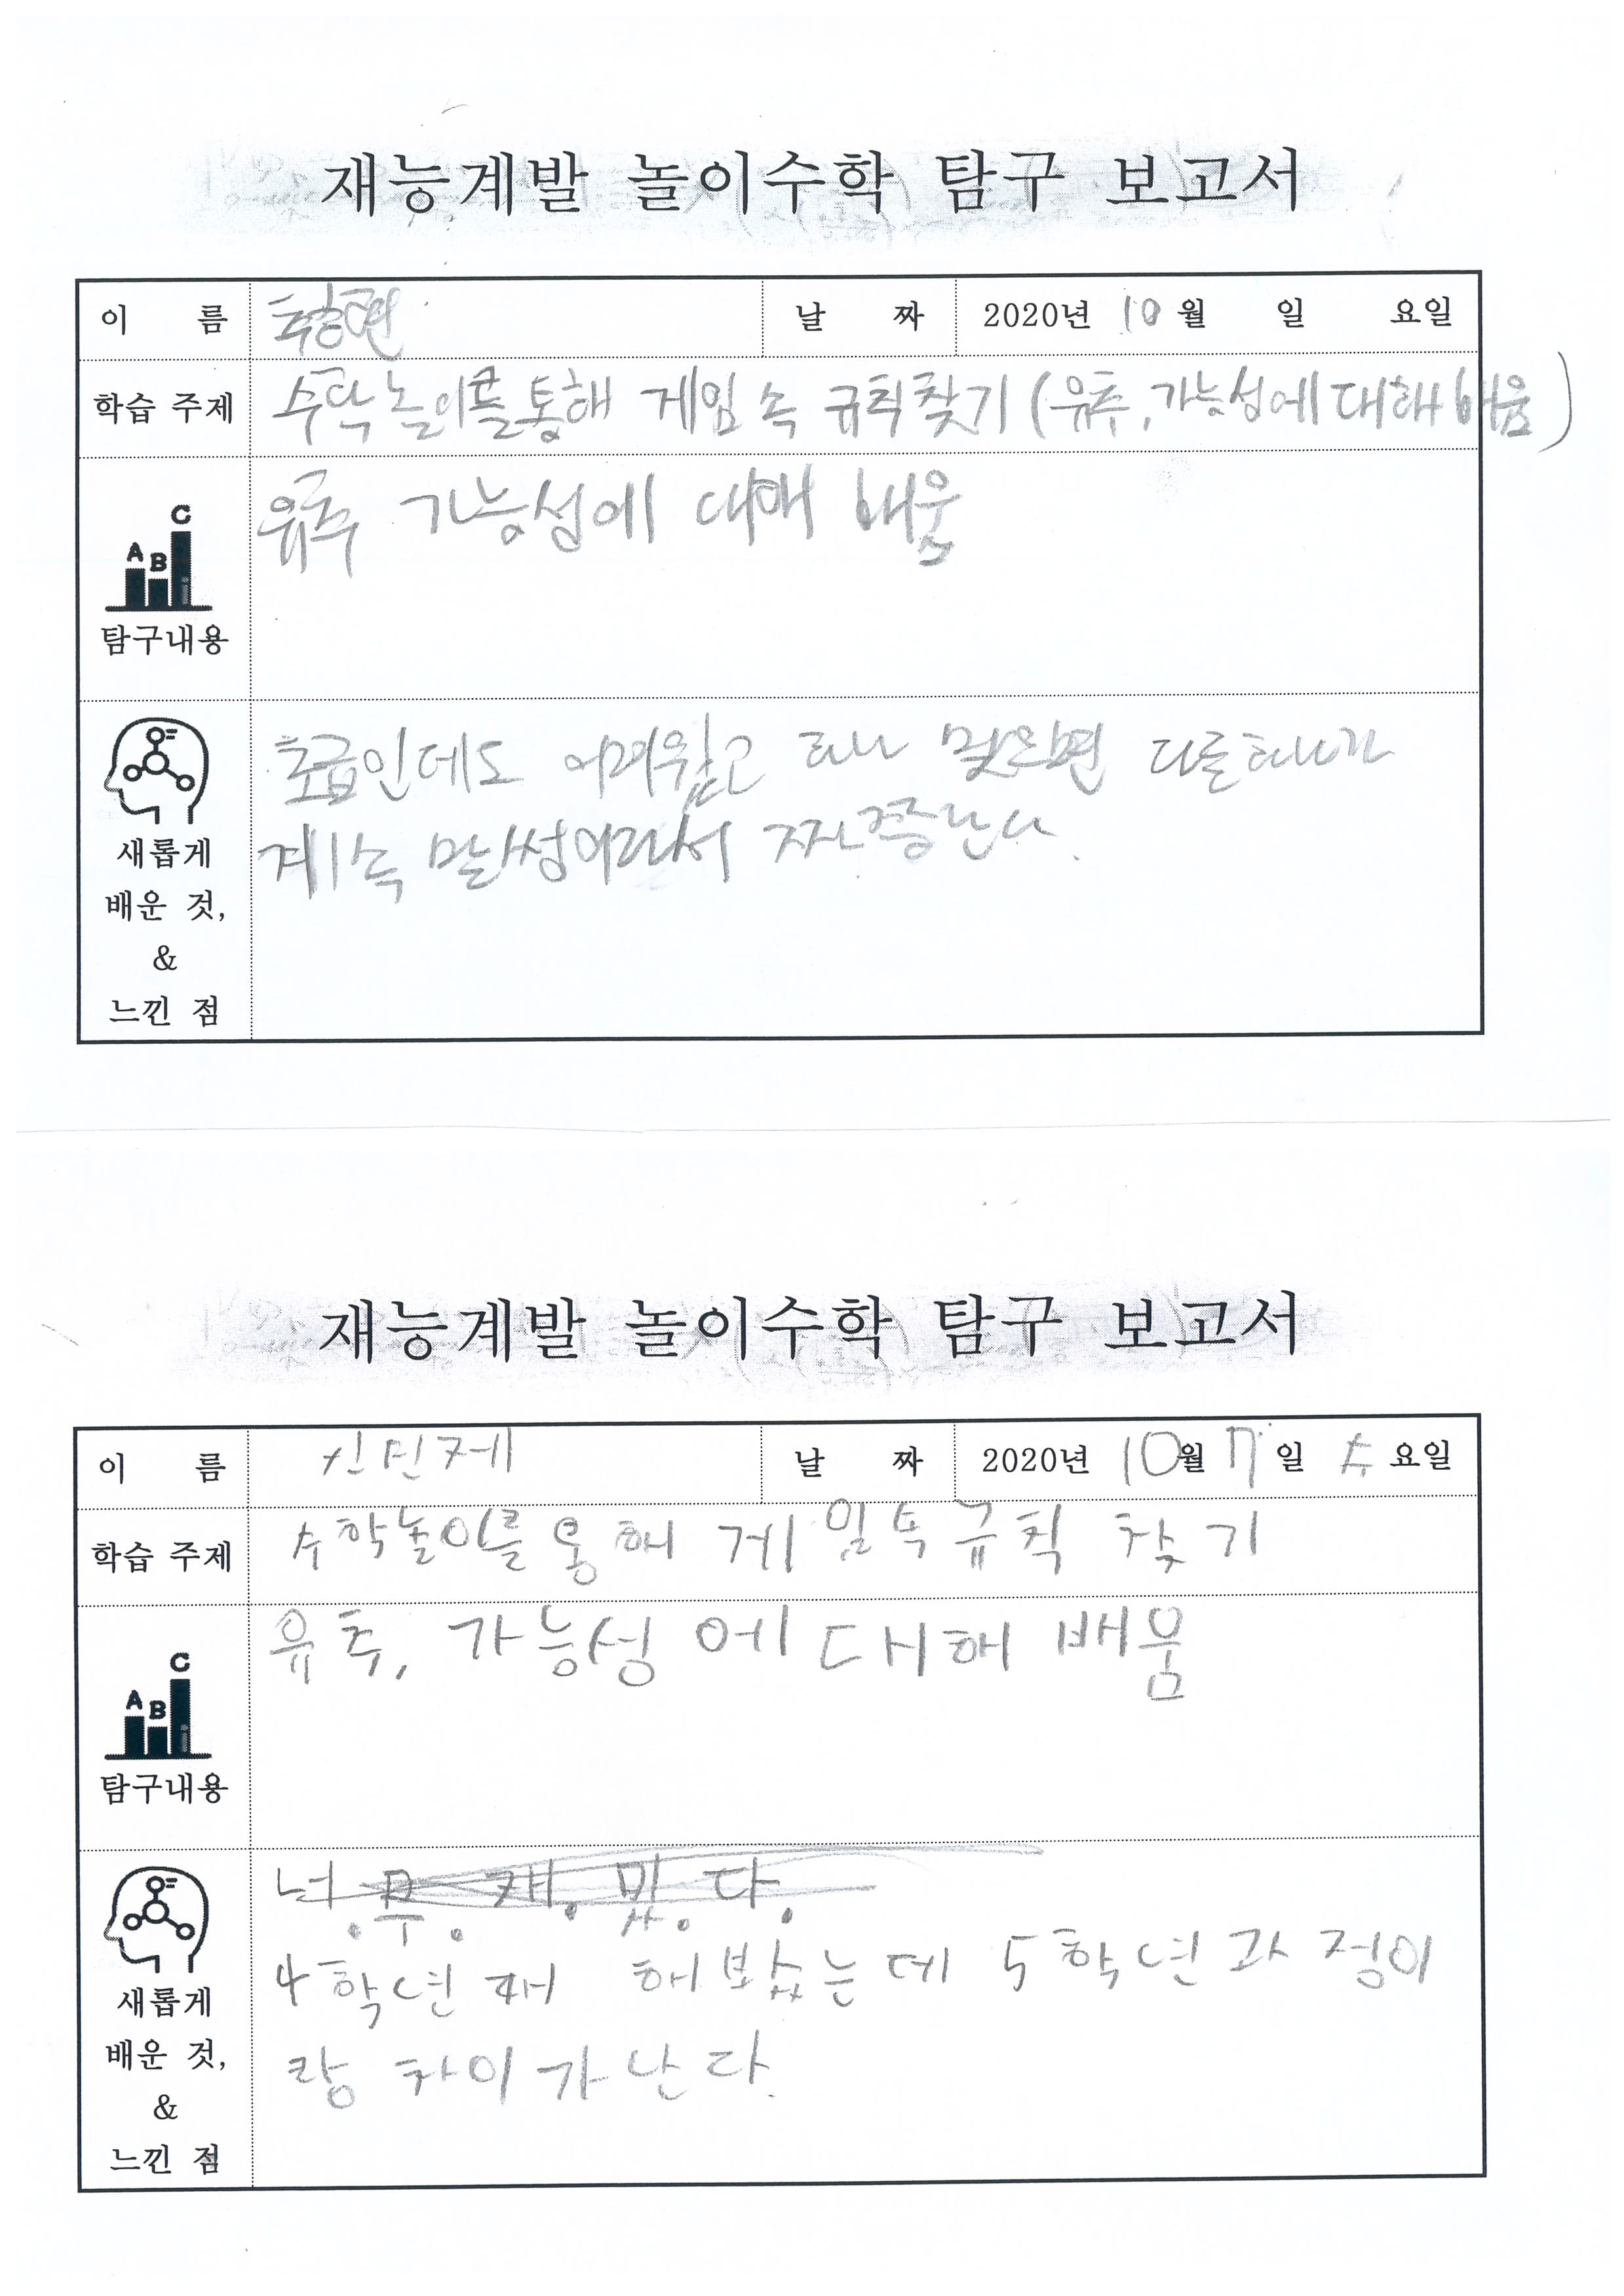 재능계발 놀이수학 탐구 보고서
이 름 날 짜 2020년 10월 일 요일
학습 주제 수학놀이를통해 게임 속 규칙찾기 (유추, 가능성에 대해 배움)
C
A B
탐구내용
유추 가능성에 대해 배움
초급인데도 어려웠고 하나 맞으면 다른하나가
계속 말썽이라서 짜증난다.
새롭게
배운 것,
&
느낀 점
재능계발 놀이수학 탐구 보고서
이 름 신민제 날 짜 2020년 10월 7일 수요일
학습 주제 수학놀이를 통해 게임속 규칙 찾기
유추, 가능성에 대해 배움
C
A B
탐구내용
너.무.재.밌.다.
4학년 때 해봤는데 5학년과정이
랑 차이가 난다.
새롭게
배운 것,
&
느낀 점